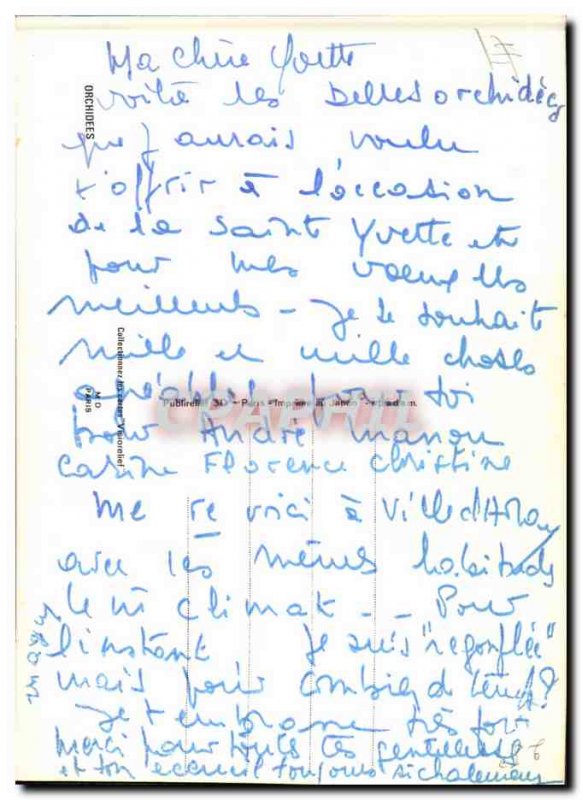 Ma chère Yvette
voilà les belles orchidées
que j'aurais voulu
t'offrir à l'occasion
de la Saint Yvette et
pour mes voeux les
meilleurs - je te souhaite
mille et mille choses
agréables pour toi
pour André Manou
Carine Florence Christine
me re voici à Ville d'Avray
avec les mêmes habitudes
le m climat - - Pour
l'instant je suis "regonflée"
mais pour combien d temps?
Je t'embrasse très fort
Merci pour toutes tes gentillesses
et ton accueil toujours si chaleureux
ORCHIDEES
Collectionnez les cartes "Visiorelief"
M D
PARIS
Publirelief 3D - Paris - Imprimé au Japon
CPAPHIL